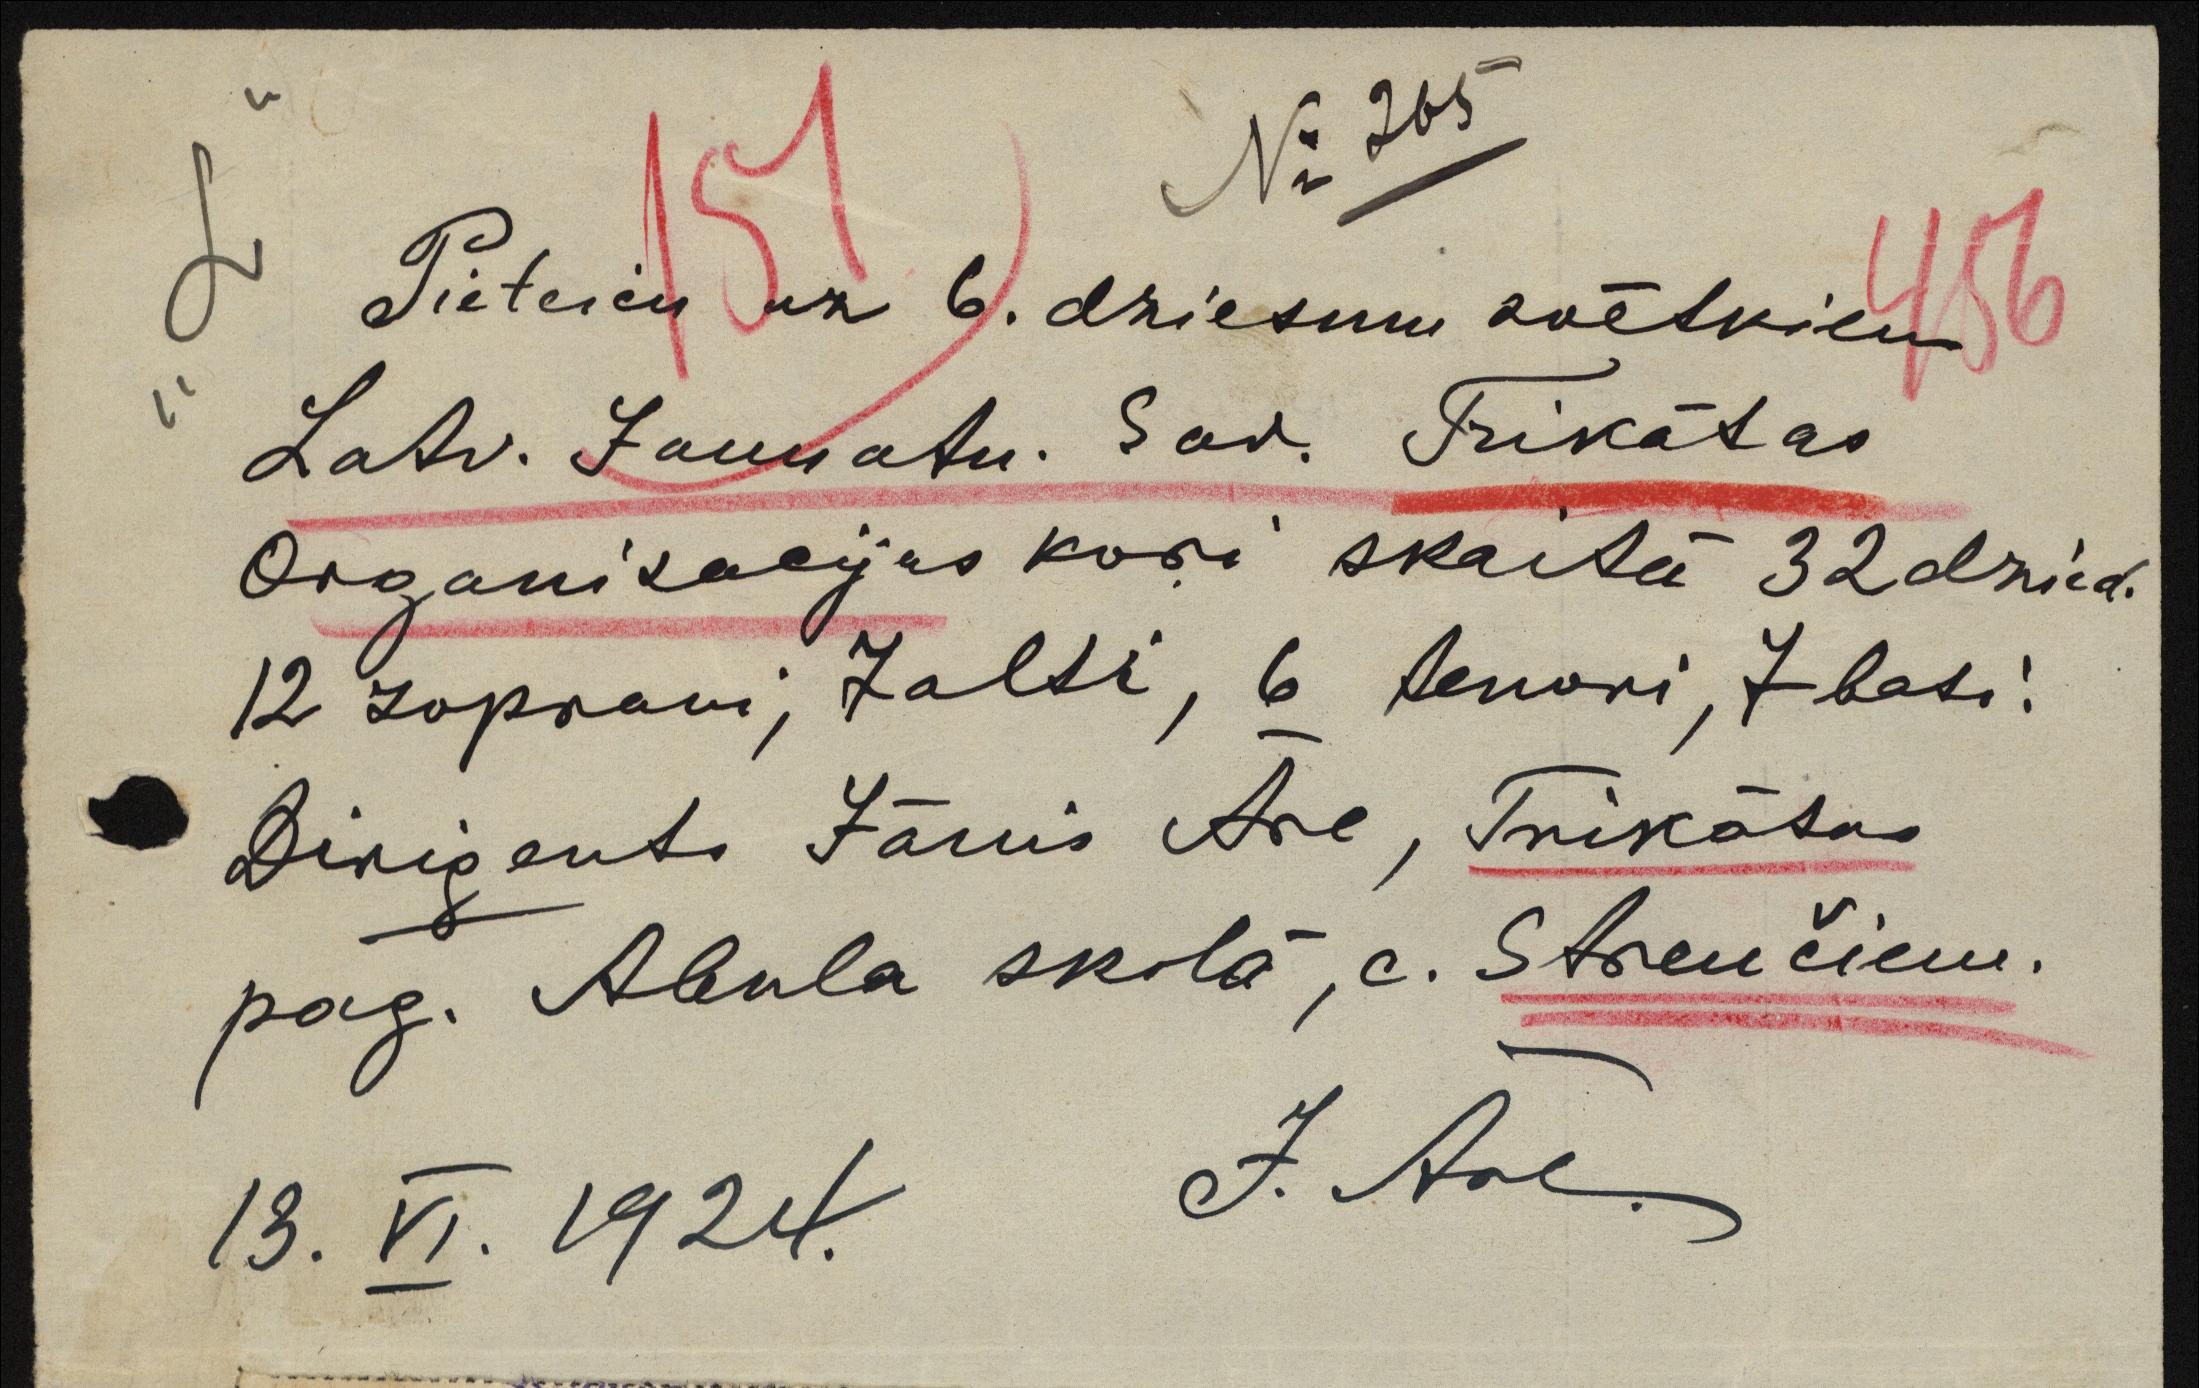 № 265
151
456
"L"
Pieteicu uz 6. dziesmu svētkiem
Latv. Jaunatn. Sav. Trikātas
Organizacijas kori skaitā 32 dzied.
12 zoprani, 7 alti, 6 tenori, 7 basi.
Diriģents Jānis Āre, Trikātas
pag. Abula skolā, c. Strenčiem.
13. VI. 1924. J. Āre.